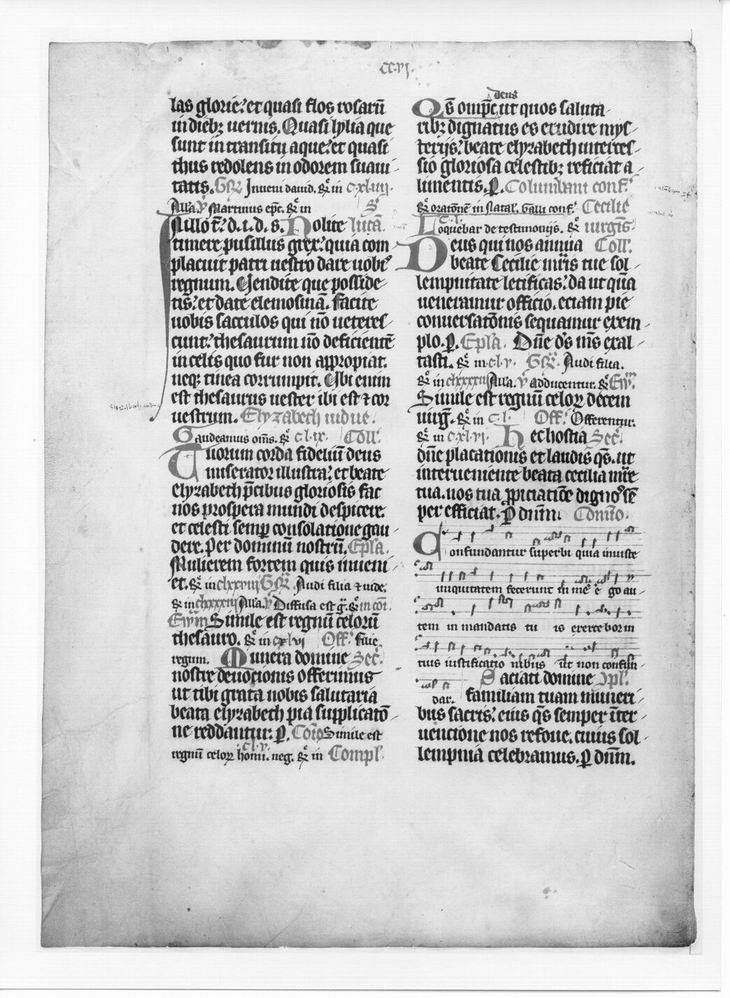 cc.vi.
las glorie. et quasi flos rosarū
in dieb; vernis. Quasi lylia que
sunt in transitu aque. et quasi
thus redolens in odorem suavi
tatis. Gr̄. Inveni david. Q̄r in c.xl.iiii.
Alla. v̄ Martinus ep̄c. Q̄r in S̄
In illo t̄. d. i. d. s. Nolite lucā.
timere pusillus grex. quia com
placuit patri vestro dare vobis
regnum. Vendite que posside
tis. et date elemosinā. Facite
vobis sacculos qui nō veteres
cunt. thesaurum nō deficientē
in celis quo fur non appropiat.
neq; tinea corrumpit. Ubi enim
est thesaurus vester ibi est et cor
vestrum. Elyzabeth vidue.
Gaudeamus om̄s. Q̄r c.l.ix. Coll̄.
Tuorum corda fideliū deus
miserator illustra. et beate
elyzabeth p̄cibus gloriosis fac
nos prospera mundi despicere.
et celesti semp consolatione gau
dere. Per dominū nostrū. Ep̄la.
Mulierem fortem quis inveni
et. Q̄r in clxxxviii Gr̄. Audi filia et vide.
Q̄r in clxxxxiii Alla. v̄ Diffusa est gr̄. Q̄r in cōi.
Ewm̄ Simile est regnū celorū
thesauro. Q̄r in cxlvi Off̄. Filie
regum. Munera domine Sec̄.
nostre devotionis offerimus
ut tibi grata nobis salutaria
beata elyzabeth pia supplicatō
ne reddantur. P̄. Cōio Simile est
c.l.v.
regnū celor; homi. neg. Q̄r in Compl̄.
deus
Qs omp̄c. ut quos saluta
rib; dignatus es erudire mys
teriis. beate elyzabeth interces
sio gloriosa celestib; reficiat a
limentis. P̄. Columbani conf̄.
Q̄r oratōnē in Natal̄. Galli conf̄. Cecilie
c.l.
Loquebar de testimoniis. Q̄r virgīs.
Deus qui nos annua Coll̄.
beate Cecilie mr̄is tue sol
lempnitate letificas. da ut quā
veneramur officio. etiam pie
conversatōnis sequamur exem
plo. P̄. Ep̄la. Dn̄e ds̄ ms̄ exal
tasti. Q̄r in c.l.v. Gr̄. Audi filia.
Q̄r in clxxxxiii Alla. v̄ adducentur. Q̄r Ewm̄
Simile est regnū celor; decem
virḡ. Q̄r in c.l. Off̄. Offerentur.
Q̄r in c.xl.vi. Hec hostia Sec̄.
dn̄e placationis et laudis qs̄. ut
interveniente beata cecilia mr̄e
tua. nos tua p̄piciatiōe dignos sē
per efficiat. P̄ dn̄m. Cōmīo.
Confundantur superbi quia iniuste
iniquitatem fecerunt in me ē go au
tem in mandatis tu is exercebor in
tuis iustificatio nibus ut non confun
Saciati domine Cōpl̄.
dar. familiam tuam muneri
bus sacris. eius qs̄ semper inter
vencione nos refove. cuius sol
lempnia celebramus. P̄ dn̄m.